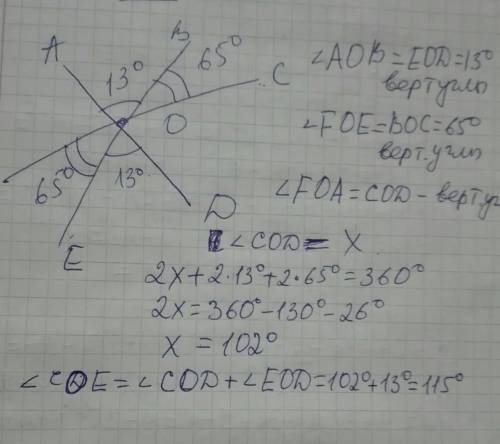 A
B
13°
65°
C
O
65°
13°
D
E
∠AOB=EOD=13°
верт углы
∠FOE=BOC=65°
верт. углы
∠FOA=COD - верт уг
∠COD = X
2X+2·13°+2·65°=360°
2X=360°-130°-26°
X =102°
∠COE=∠COD+∠EOD=102°+13°=115°